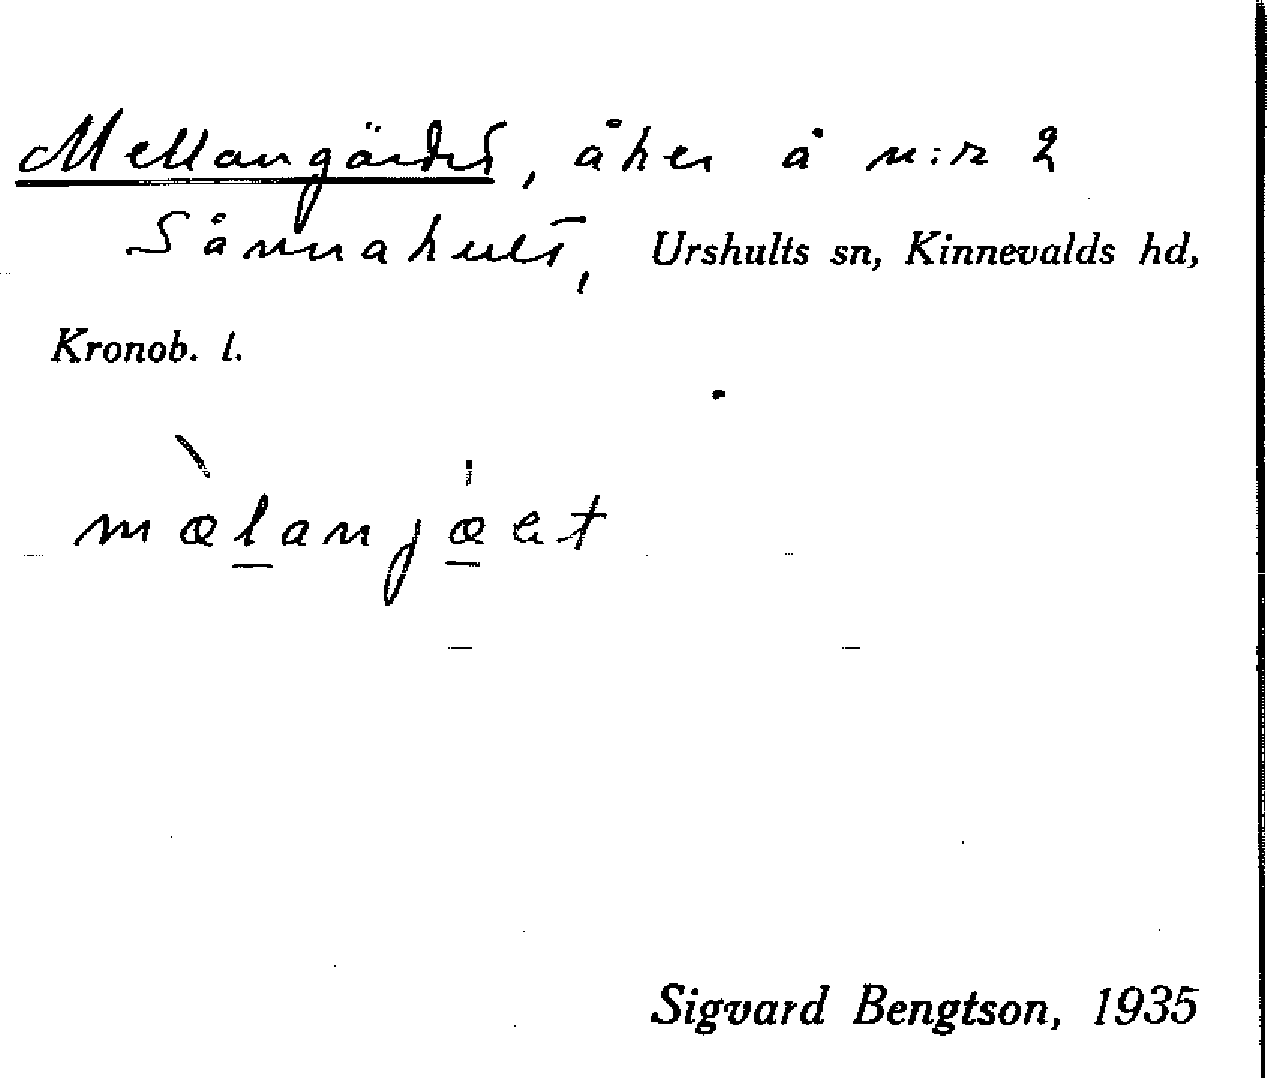 Mellangärdet, åker å n:r 2
Sånnahult, Urshults sn, Kinnevalds hd,
Kronob. l.
mælanjæet
Sigvard Bengtson, 1935